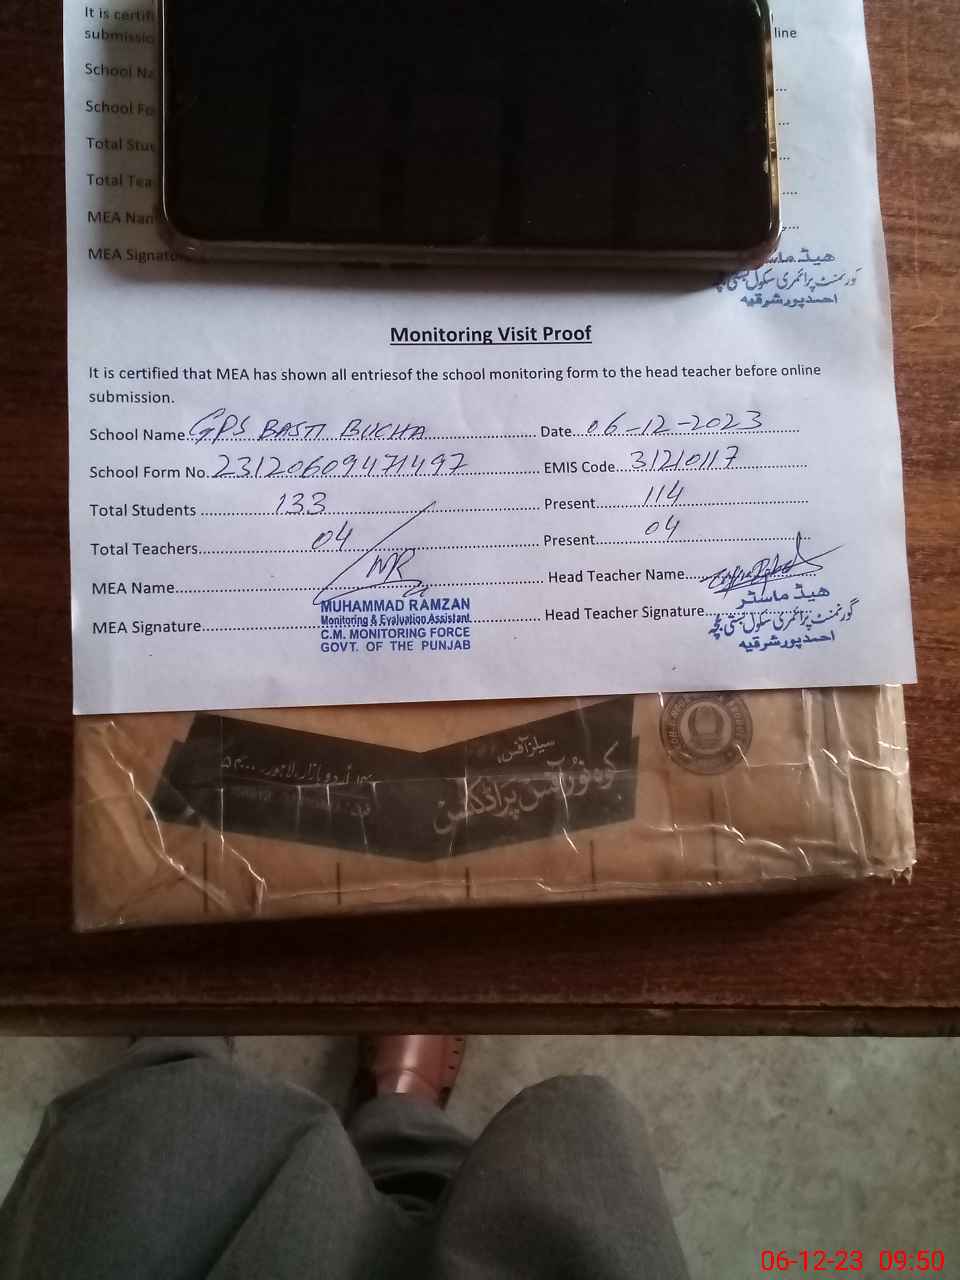 It is certifi
submissio line
School Na
School Fo
Total Stud
Total Tea
MEA Nam
MEA Signatu
ھیڈ ماسٹر
گورنمنٹ پرائمری سکول بستی
احمدپورشرقیہ
Monitoring Visit Proof
It is certified that MEA has shown all entriesof the school monitoring form to the head teacher before online
submission.
School Name GPS BASTI BUCHA Date 06-12-2023
School Form No. 23120609471497 EMIS Code 31210117
Total Students 133 Present 114
Total Teachers 04 Present 04
MEA Name MR Head Teacher Name
MEA Signature Head Teacher Signature
MUHAMMAD RAMZAN
Monitoring & Evaluation Assistant
C.M. MONITORING FORCE
GOVT. OF THE PUNJAB
ھیڈ ماسٹر
گورنمنٹ پرائمری سکول بستی بچہ
احمدپورشرقیہ
سیلز آفس:
کوہ نور آفس پراڈکٹس
اردو بازار لاہور
06-12-23 09:50